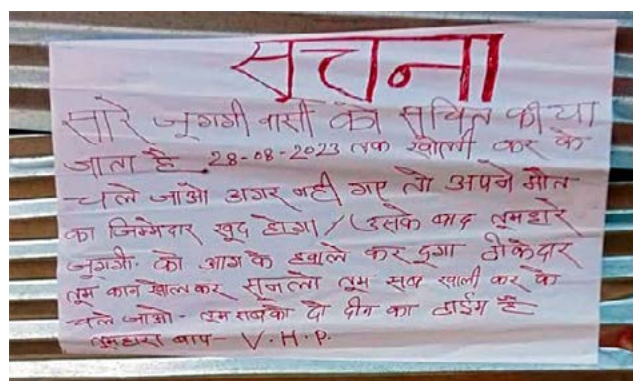 सूचना
सारे जुगगी वासी को सुचित कीया
जाता है 28-08-2023 तक खाली कर के
चले जाओ अगर नही गए तो अपने मौत
का जिम्मेदार खूद होगा / उसके बाद तुमहारे
जुगगी. को आग के हवाले कर दुगा ठीकेदार
तुम कान खोलकर सूनलो तुम सब खाली कर के
चले जाओ - तुम सबको दो दीन का टाईम है
तुमहारा बाप - V.H.P.